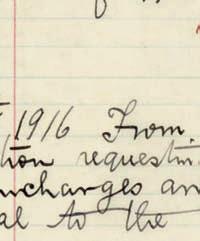 1916 From
tion requestin
urcharges an
al to the